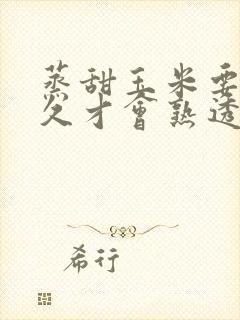 蒸甜玉米要
久才會熟透
希行